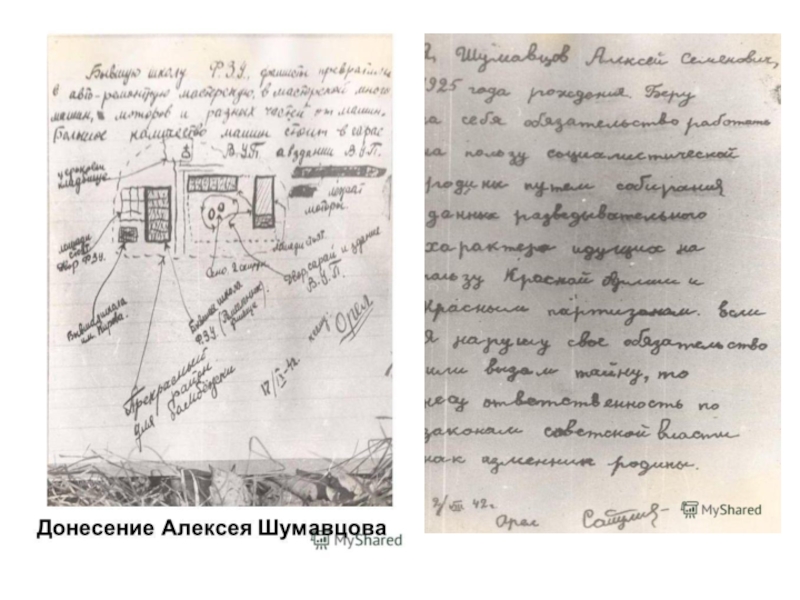 Бывшую школу Ф.З.У. фашисты превратили
в авто-ремонтную мастерскую, в мастерской много
машин, моторов и разных частей от машин.
Большое количество машин стоит в сарае
В.У.П. а в здании В.У.П.
лежат
моторы.
церковь
кладбище
лошади
стоят
Двор Ф.З.У.
Сено
Лошади стоят.
Двор сарай и здание
В.У.П.
им. Кирова.
Бывшая школа
Ф.З.У.
Прекрасный
район
для бомбёжки
17/IX-42.
Орел
Донесение Алексея Шумавцова
MyShared
Шумавцов Алексей Семенович,
1925 года рождения. Беру
на себя обязательство работать
на пользу социалистической
родины путем собирания
данных разведывательного
характера идущих на
пользу Красной Армии и
Красным партизанам. Если
я нарушу свое обязательство
или выдам тайну, то
несу ответственность по
законам советской власти
как изменник родины.
2/VIII 42г.
Орел
MyShared